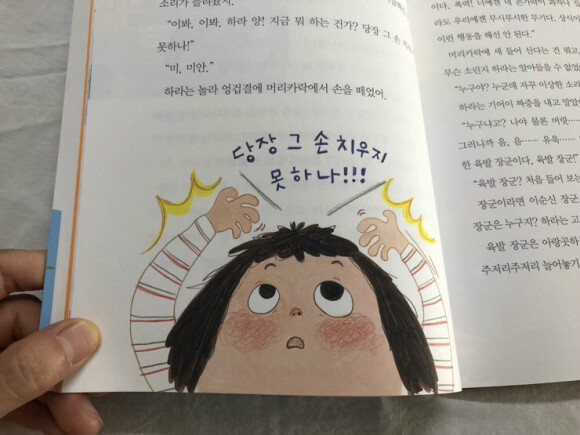 소리가 들려왔지.
“이봐, 이봐, 하라 양! 지금 뭐 하는 건가? 당장 그 손
못하나!”
“미, 미안.”
하라는 놀라 엉겁결에 머리카락에서 손을 떼었어.
당장 그 손 치우지
못하나!!!
이다. 폭력! 너에겐 네 손가락이
라도 우리에겐 무시무시한 무기다.
이런 행동을 해선 안 된다.”
머리카락에 세 들어 산다는 건 뭐고,
무슨 소린지 하라는 알아들을 수 없었
“누구야? 누군데 자꾸 이상한 소리
하라는 기어이 짜증을 내고 말았
“누구냐고? 나야 물론 머릿……
그러니까 음, 음…… 유욱……
한 육발 장군이다, 육발 장군!”
“육발 장군? 처음 들어 보는
장군이라면 이순신 장군,
장군은 누구지? 하라는 고
육발 장군은 아랑곳하
주저리주저리 늘어놓기